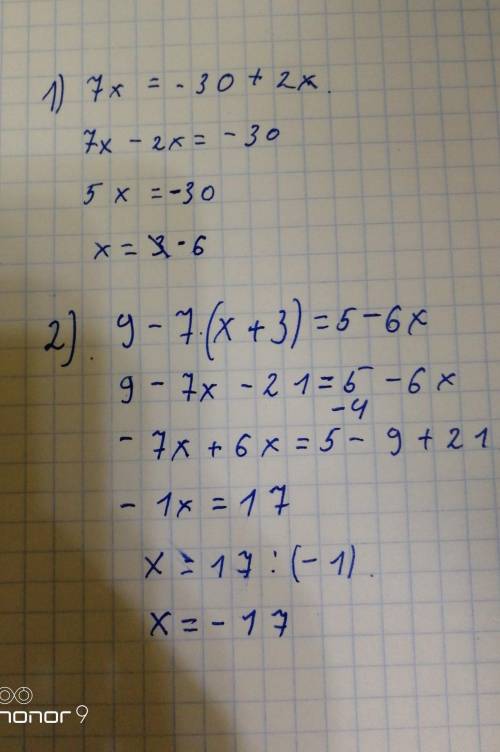 1) 7x = -30 + 2x.
7x - 2x = -30
5x = -30
x = -6
2). 9 - 7·(x + 3) = 5 - 6x
9 - 7x - 21 = 5 - 6x
-4
- 7x + 6x = 5 - 9 + 21
- 1x = 17
x = 17 : (- 1).
x = - 17
honor 9